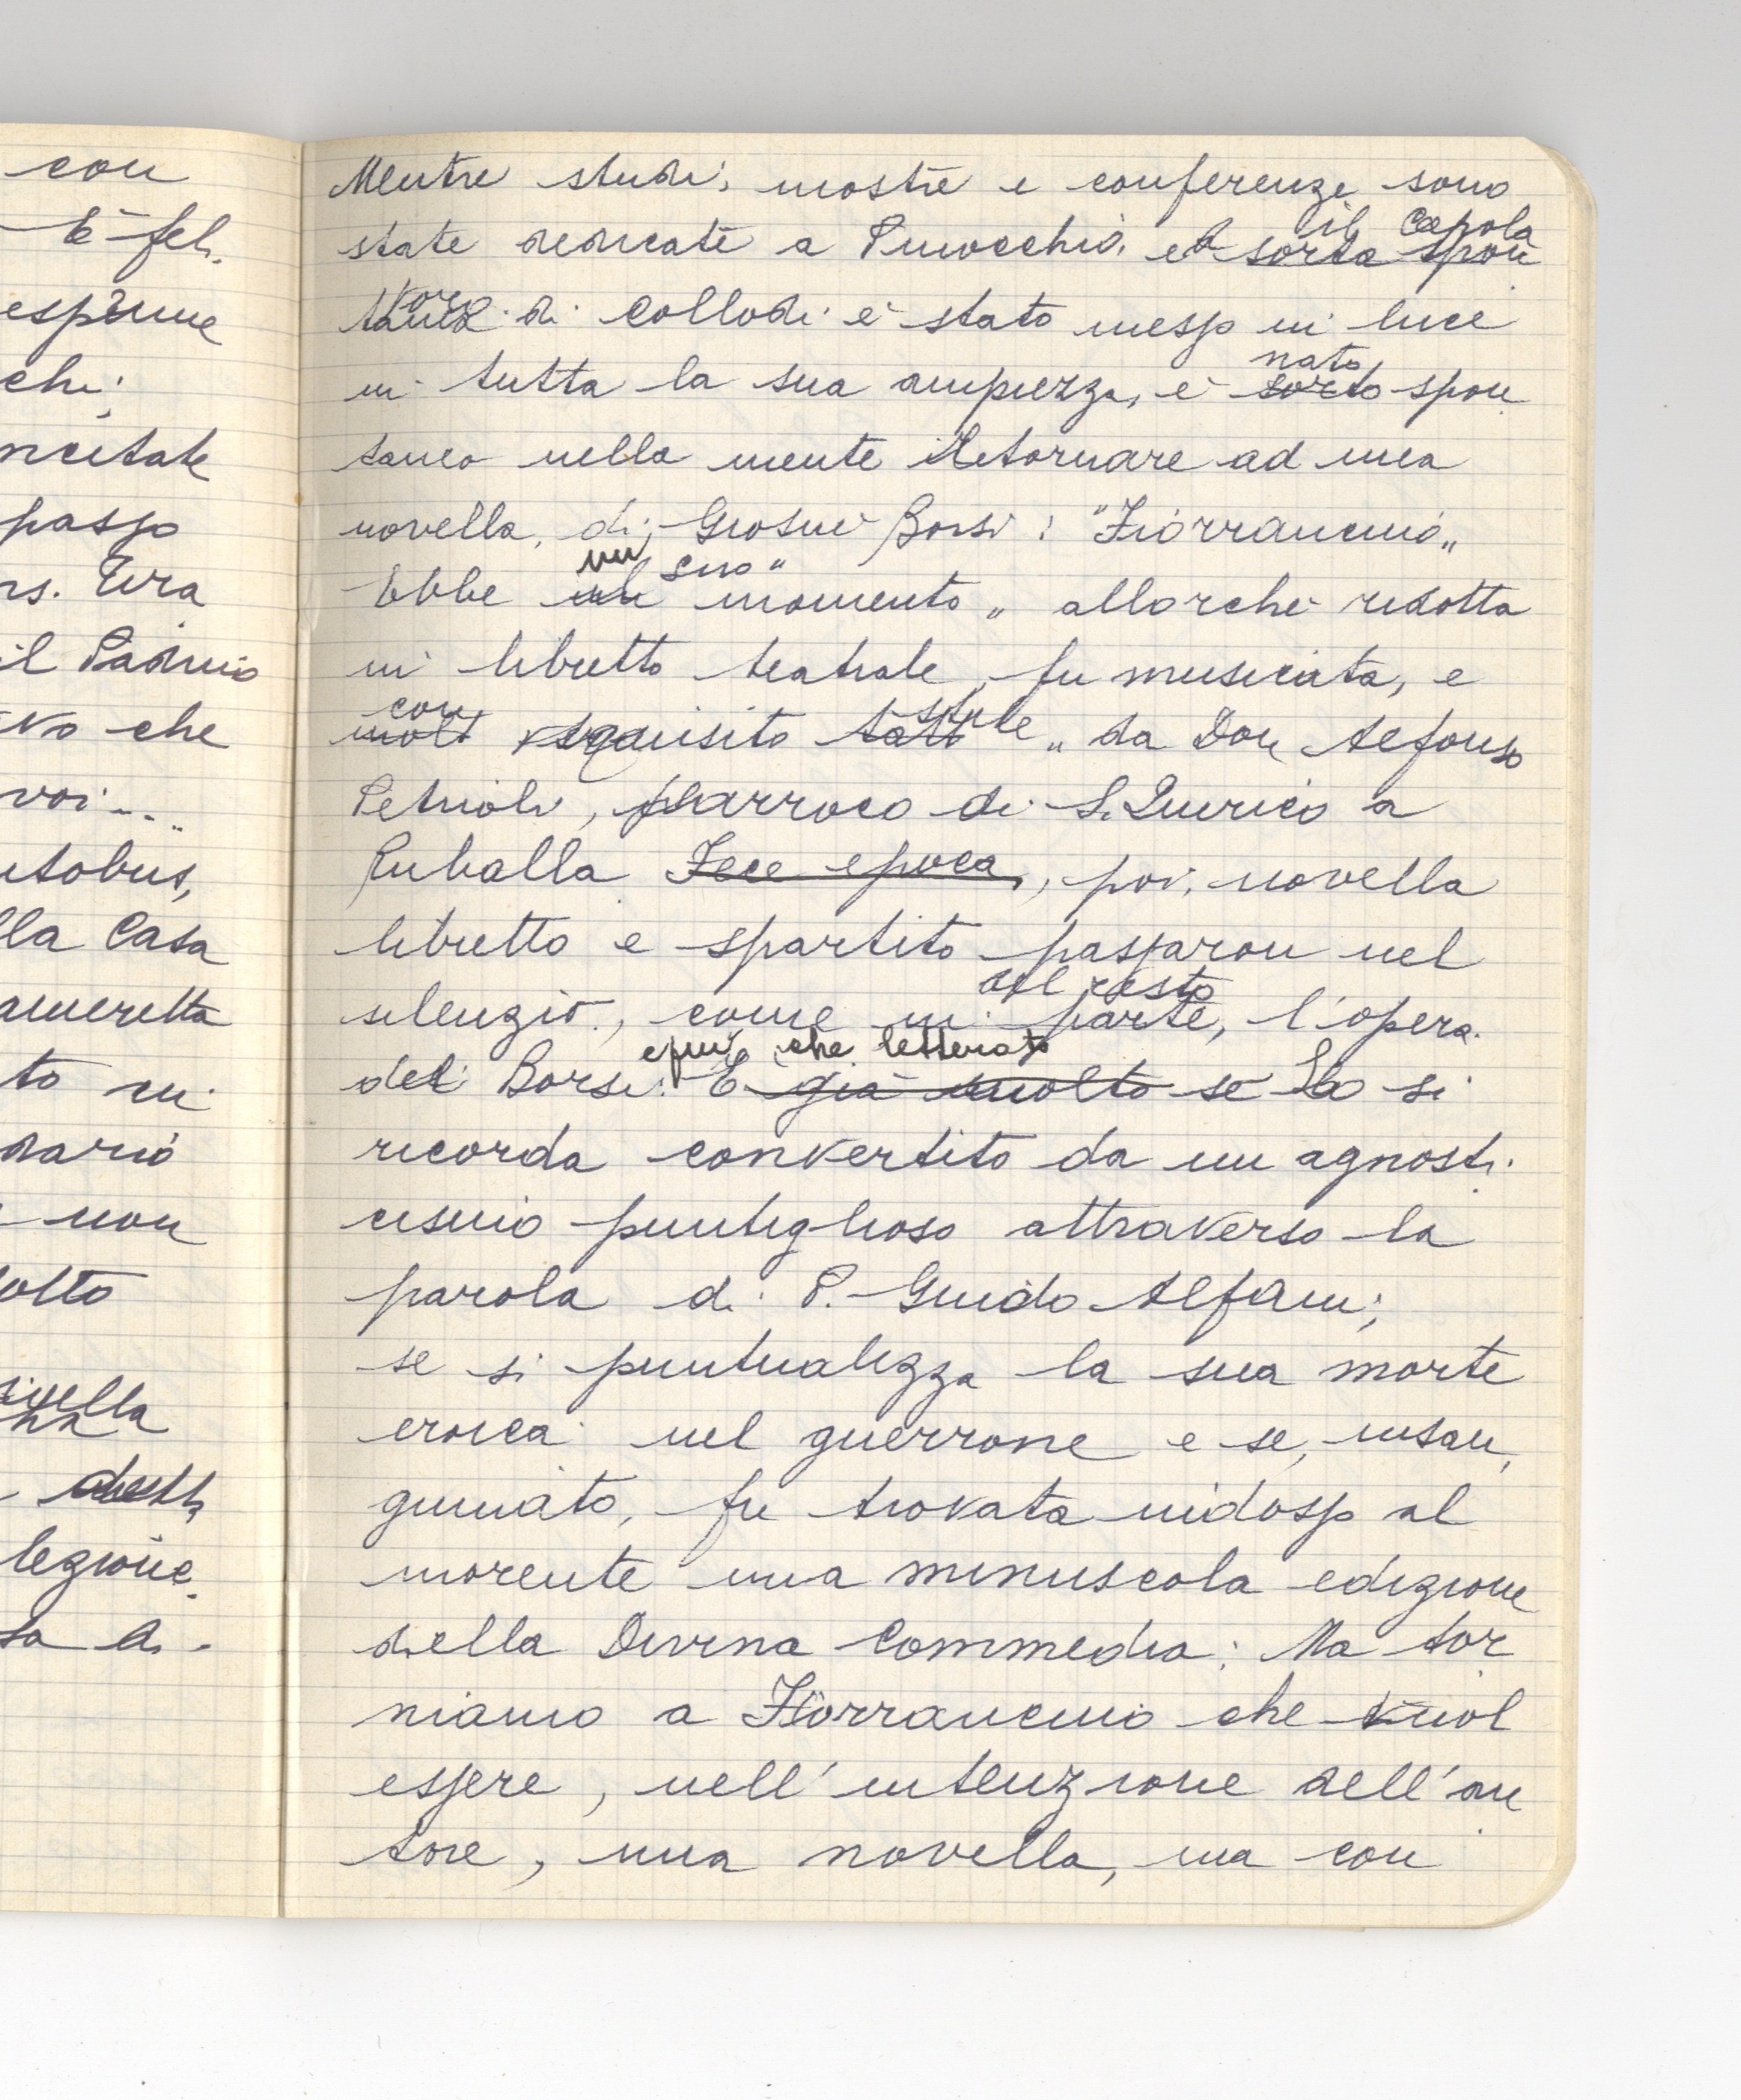 con
È feli
esprime
chi;
ncitate
passo
rs. Era
il Padrino
vo che
voi..."
utobus,
lla Casa
ameretta
to in
dario
non
olto
legione
sa di
Mentre studi, mostre e conferenze sono
state dedicate a Pinocchio, ed sorta spon il capola
tanea voro di Collodi è stato messo in luce
in tutta la sua ampiezza, è sorto nato spon
taneo nella mente ritornare ad una
novella, di, Giosuè Borsi: "Fiorrancino"
Ebbe un "suo momento" allorché ridotta
in libretto teatrale, fu musicata, e
molt con squisito tatto stile, da Don Alfonso
Petrioli, parroco di S. Quirico a
Ruballa. Fece epoca, poi, novella
libretto e spartito passaron nel
silenzio, come in parte, del resto l'opera
del Borsi. E già molto se e più che letterato Lo si
ricorda convertito da un agnosti
cismo puntiglioso attraverso la
parola di P. Guido Alfani;
se si puntualizza la sua morte
eroica nel guerrone e se, insan
guinato, fu trovata indosso al
morente una minuscola edizione
della Divina Commedia. Ma tor
niamo a Fiorrancino che vuol
essere, nell'intenzione dell'au
tore, una novella, ma con